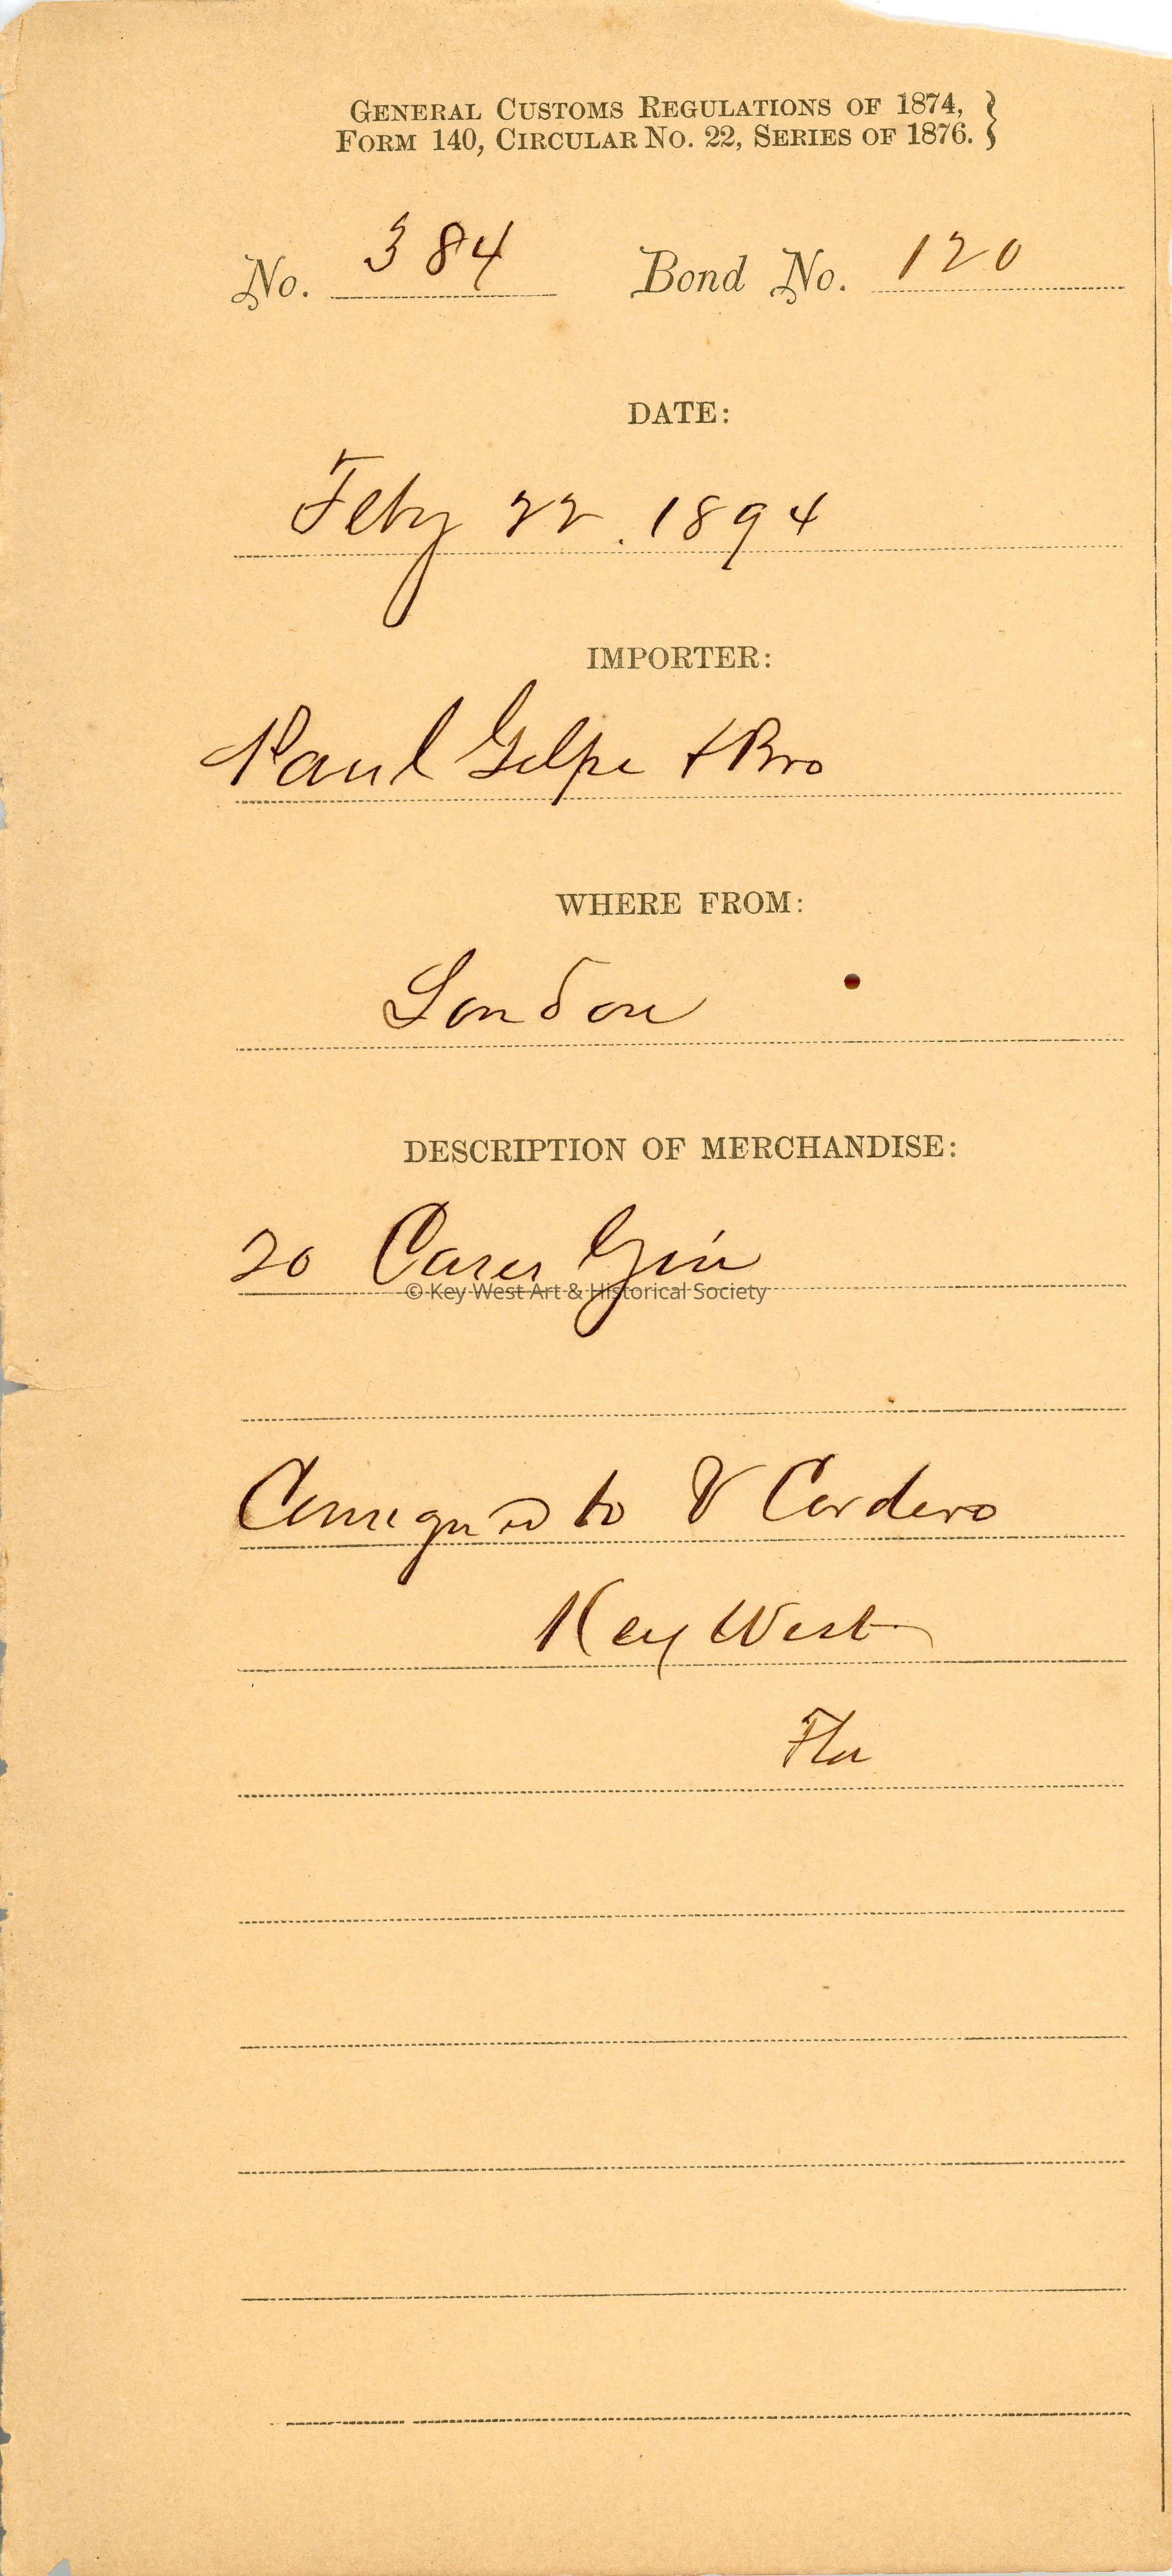 GENERAL CUSTOMS REGULATIONS OF 1874, }
FORM 140, CIRCULAR NO. 22, SERIES OF 1876. }
No. 384 Bond No. 120
DATE:
Feby 22. 1894
IMPORTER:
Paul Gelpi & Bro
WHERE FROM:
London
DESCRIPTION OF MERCHANDISE:
20 Cases Gin
© Key West Art & Historical Society
Consigned to V Cordero
Key West
Fla